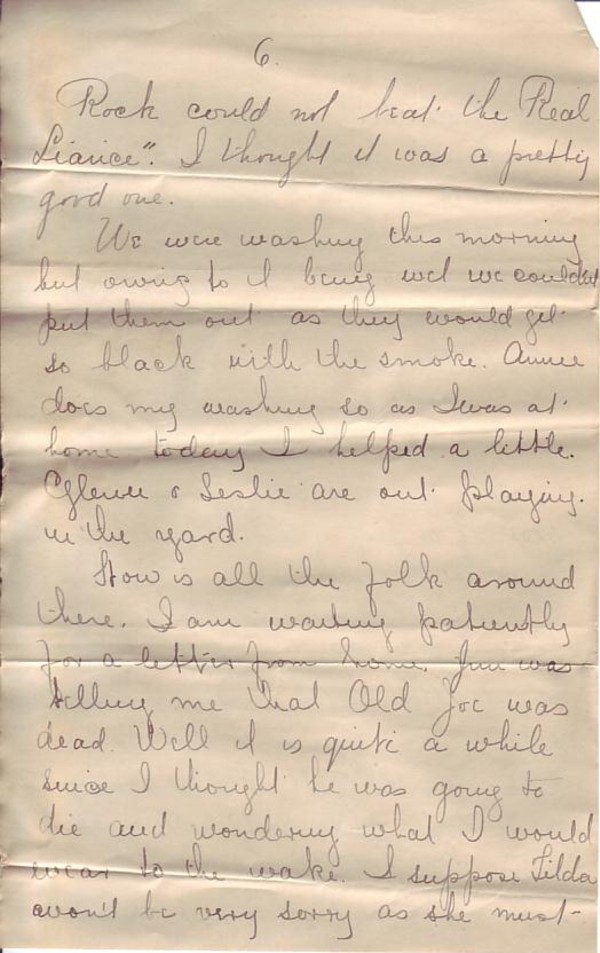 6.
Rock could not beat the Real
Liance". I thought it was a pretty
good one.
We were washing this morning
but owing to it being wet we couldn't
put them out as they would get
so black with the smoke. Annie
does my washing so as I was at
home today I helped a little.
& Leslie are out playing.
in the yard.
How is all the folk around
there. I am waiting patiently
for a letter from home. Jim was
telling me that Old Joe was
dead. Well it is quite a while
since I thought he was going to
die and wondering what I would
wear to the wake. I suppose Tilda
won't be very sorry as she must